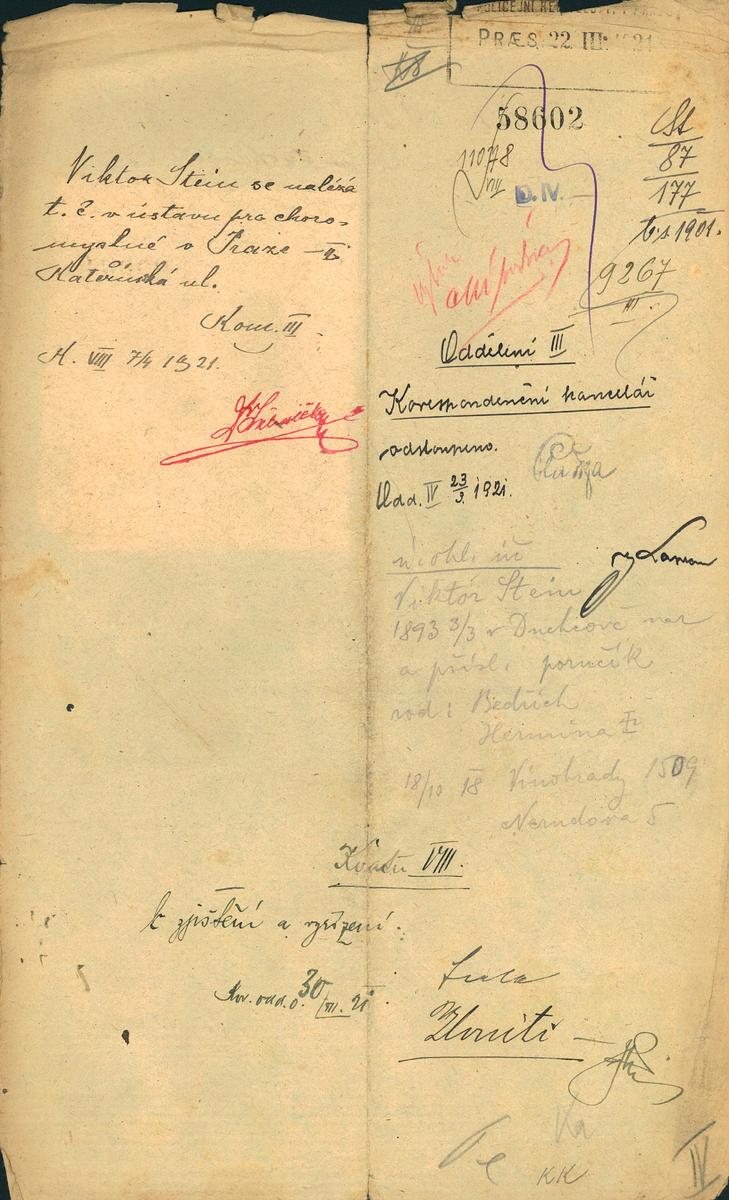 Viktor Stein se nalézá
t. č. v ústavu pro choro-
myslné v Praze -II-
Kateřinská ul.
Kom. III.
K. VIII 7/4 1921.
PRÆS. 22 III. 1921
58602
11078
VIII
D. IV. —
St
87
177
tr. z. 1901.
9267
III.
Oddělení III
Korespondenční kancelář
odstoupeno.
Odd. IV 23/3. 1921.
Viktor Stein
1893 3/3 v Duchcově nar
a přísl. poručík
rod: Bedřich
Hermína
18/10 18 Vinohrady 1509
Nerudova 5
VIII.
k zjištění a vyřízení.
Kor. odd. 30/III. 21
Ka
KK
IV